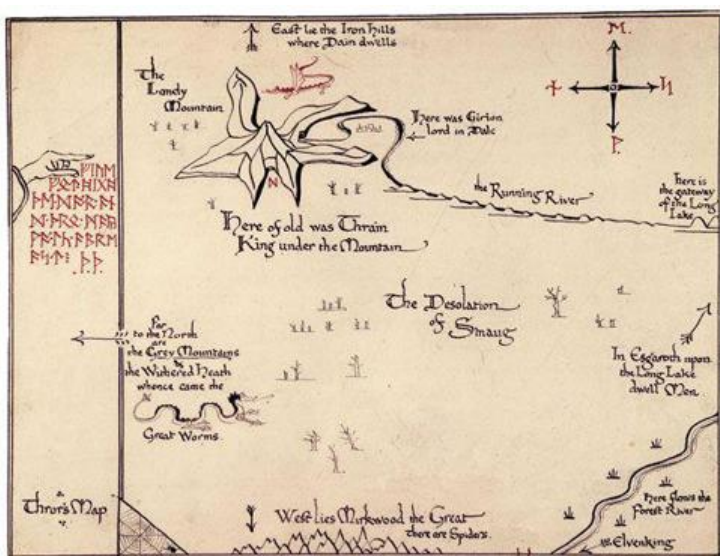 East lie the Iron Hills
where Dain dwells
ᛖ.
ᚾ
ᛋ
ᚹ.
The
Lonely
Mountain
Here was Girion
lord in Dale
ᚠᛁᚢᛖ
ᚠᚩᛏ᛫ᚻᛁᚷᚻ
ᚦᛖ᛫ᛞᚩᚱ᛫ᚫᚾ
ᛞ᛫ᚦᚱᛟ᛫ᛗᚫᚣ
ᚹᚫᛚᚳ᛫ᚫᛒᚱᛖ
ᚫᛋᛏ᛬ ᚦ᛫ᚦ᛫
the Running River
here is
the gateway
of the Long
Lake
Here of old was Thrain
King under the Mountain
The Desolation
of Smaug
Far
to the North
are
the Grey Mountains
&
the Withered Heath
whence came the
Great Worms.
In Esgaroth upon
the Long Lake
dwell Men
Thror's Map
West lies Mirkwood the Great
there are Spiders.
Here flows the
Forest River
Elvenking